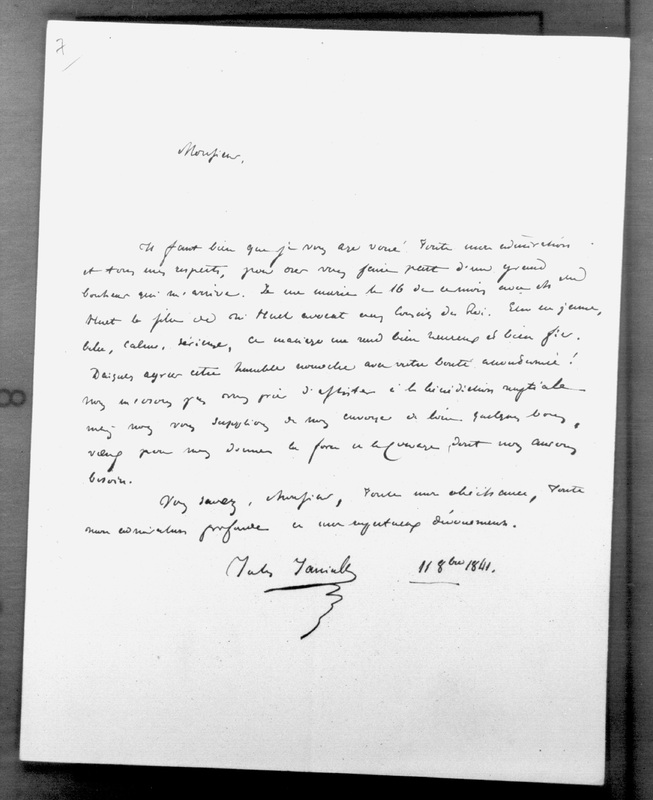 7
Monsieur,
Il faut bien que je vous aye voué toute mon admiration
et tous mes respects, pour oser vous faire part d'un grand
bonheur qui m'arrive. Je me marie le 16 de ce mois avec
Huet la fille de Mr Huet avocat aux Conseils du Roi. Elle est jeune,
belle, calme, sérieuse, ce mariage me rend bien heureux et bien fier.
Daignez agréer cette humble nouvelle avec votre bonté accoutumée!
nous n'osons pas vous prier d'assister à la bénédiction nuptiale
mais nous vous supplions de nous envoyer de loin quelques bons
vœux pour nous donner la force et le courage dont nous aurons
besoin.
Vous savez, Monsieur, toute mon obéissance, toute
mon admiration profonde et mon respectueux dévouement.
Jules Janin
11 8bre 1841.
8